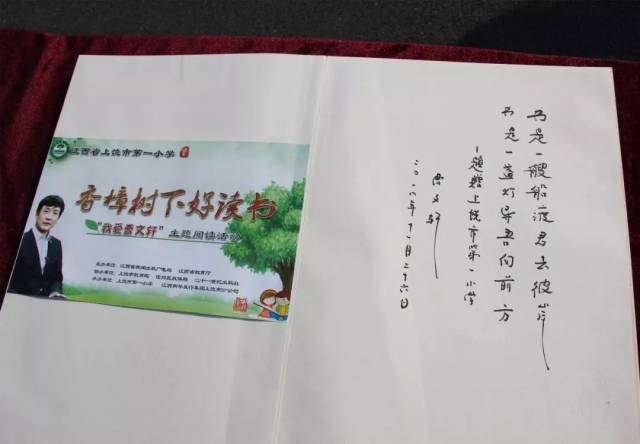 江西省上饶市第一小学
香樟树下好读书
“我爱曹文轩”主题阅读活动
主办单位：江西省新闻出版广电局 江西省教育厅
协办单位：上饶市教育局 信州区教体局 二十一世纪出版社
承办单位：上饶市第一小学 江西新华发行集团上饶市分公司
书是一艘船渡君去彼岸
书是一盏灯导吾向前方
-题赠上饶市第一小学
曹文轩
二〇一八年十一月二十六日